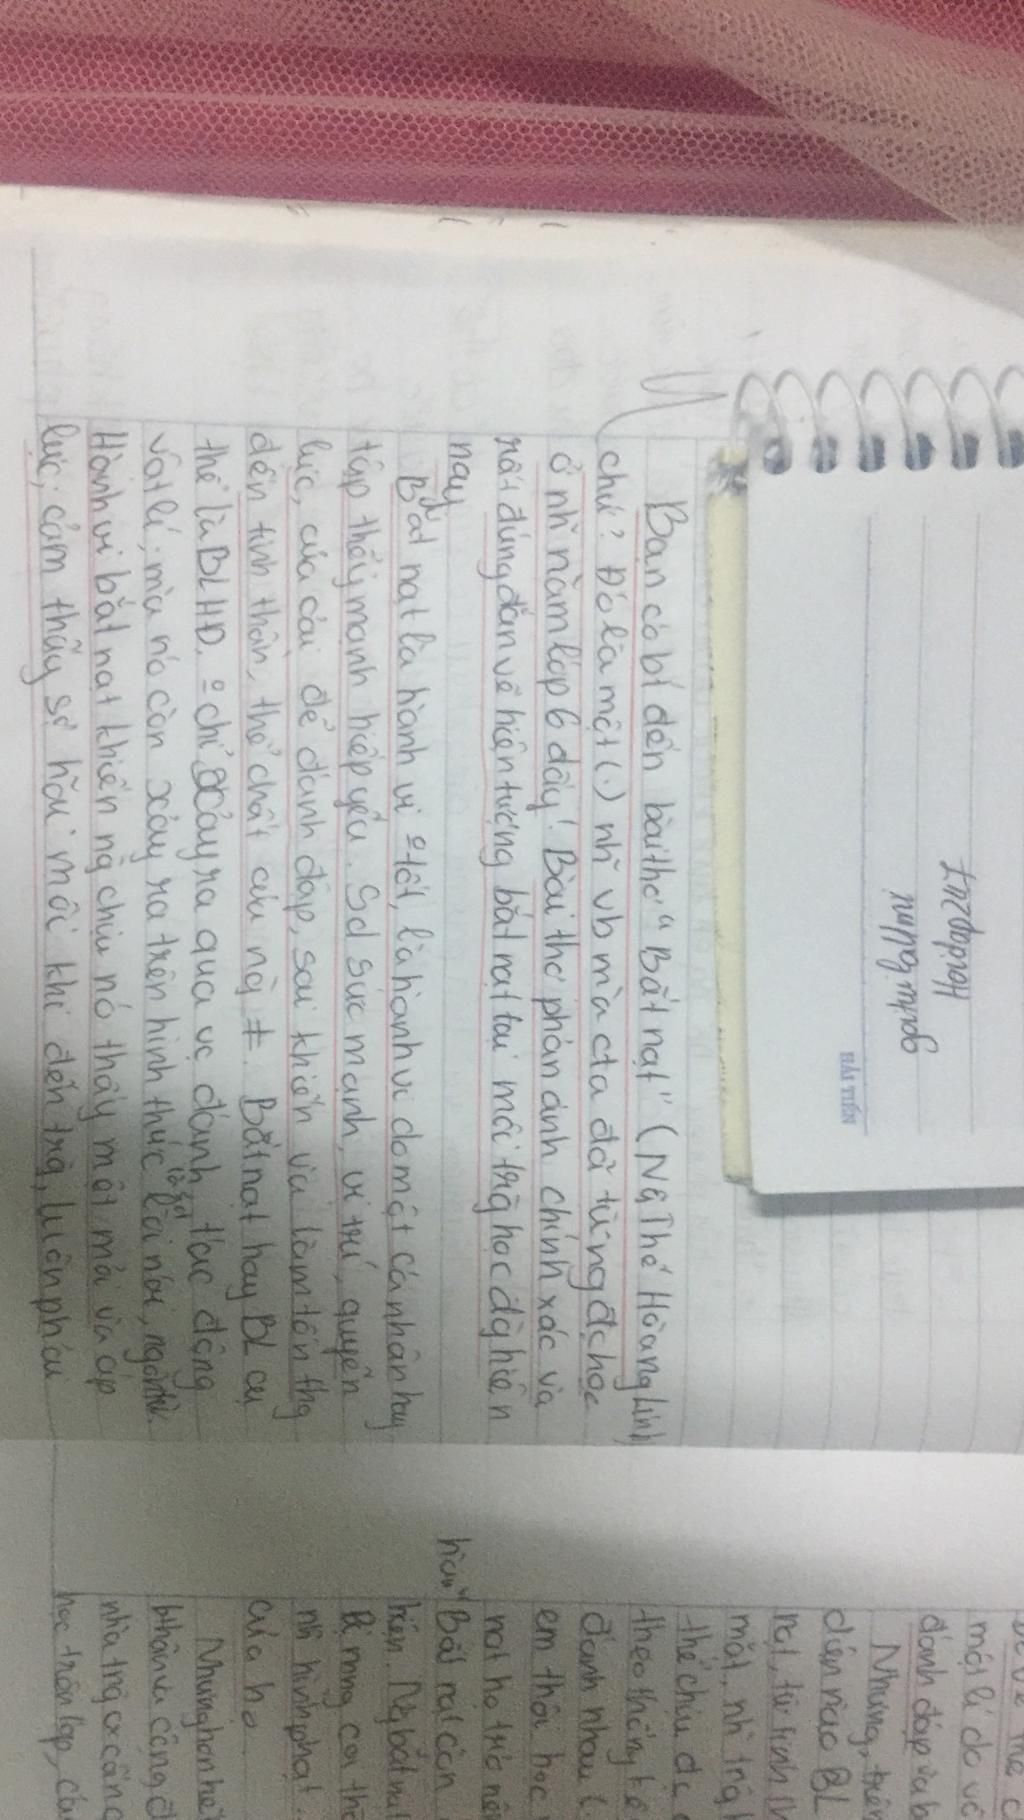 Bạn có bt đến bài thơ "Bắt nạt" (Ng Thế Hoàng Linh)
chứ? Đó là một (.) nh~ vb mà cta đã từng đc học
ở nh~ năm lớp 6 đấy! Bài thơ phản ánh chính xác và
rất đúng đắn về hiện tượng bắt nạt tại môi trg học đg hiện
nay
Bắt nạt là hành vi º tốt, là hành vi do một cá nhân hay
tập thể ỷ mạnh hiếp yếu. Sd sức mạnh, vị trí, quyền
lực, của cải để đánh đập, sai khiến và làm tổn thg
đến tinh thần, thể chất của ng ≠. Bắt nạt hay BL cụ
thể là BLHĐ, º chỉ xảy ra qua vc đánh, tác động
vật lí, mà nó còn xảy ra trên hình thức lời nói,
Hành vi bắt nạt khiến ng chịu nó thấy mệt mỏi và áp
lực; cảm thấy sợ hãi mỗi khi đến trg, luôn phải
HẢI TIẾN
một lí do
đánh đập và b
Nhưng,
diễn nào BL
nạt, từ
mặt, nh~ trg
thể chịu đc
theo thống kê
đánh nhau (.
em thôi học
nạt họ trở nên
hành Bắt nạt còn
hiện. Ng bắt nạt
Bị mng coi th
nh~ hình phạt
của họ
Nhưng hơn hết
bthân, cộng đ
nhà trg cx cần
học trên lớp, các